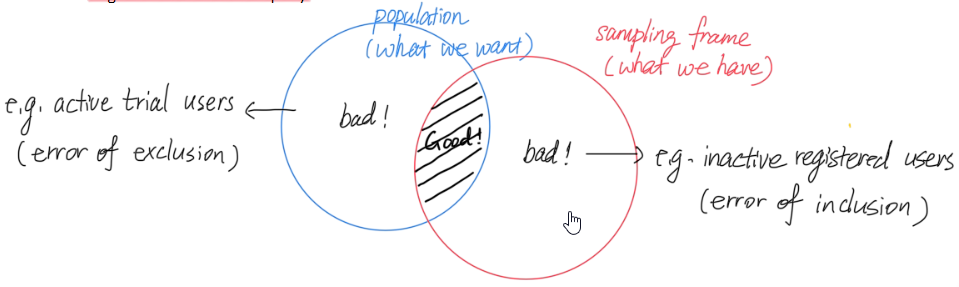 population
(what we want)
sampling frame
(what we have)
e.g. active trial users
(error of exclusion)
bad!
Good!
bad!
e.g. inactive registered users
(error of inclusion)